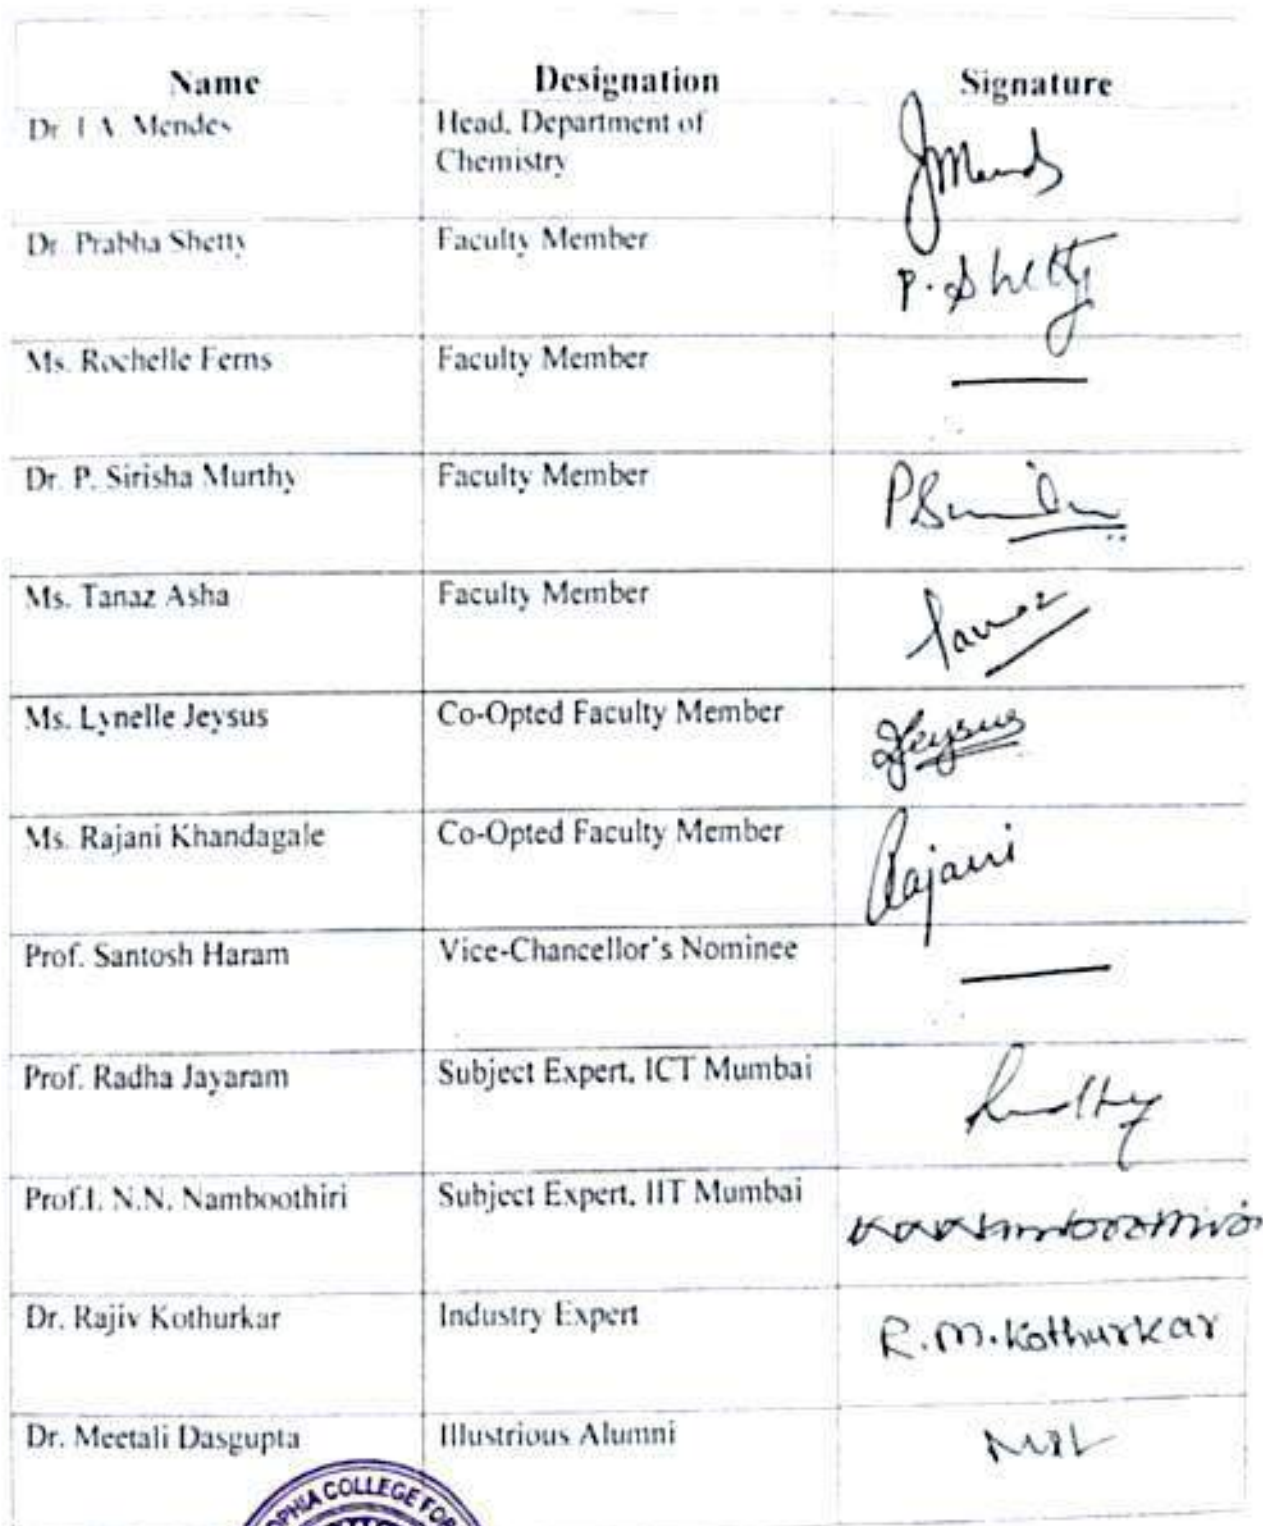 Name Designation Signature
Dr Mendes Head, Department of
Chemistry
Dr. Prabha Shetty Faculty Member P. Shetty
Ms. Rochelle Ferns Faculty Member
Dr. P. Sirisha Murthy Faculty Member
Ms. Tanaz Asha Faculty Member Tanaz
Ms. Lynelle Jeysus Co-Opted Faculty Member Jeysus
Ms. Rajani Khandagale Co-Opted Faculty Member Rajani
Prof. Santosh Haram Vice-Chancellor's Nominee
Prof. Radha Jayaram Subject Expert, ICT Mumbai
Prof.I. N.N. Namboothiri Subject Expert, IIT Mumbai
Dr. Rajiv Kothurkar Industry Expert R.M.Kothurkar
Dr. Meetali Dasgupta Illustrious Alumni
OPHIA COLLEGE FOR